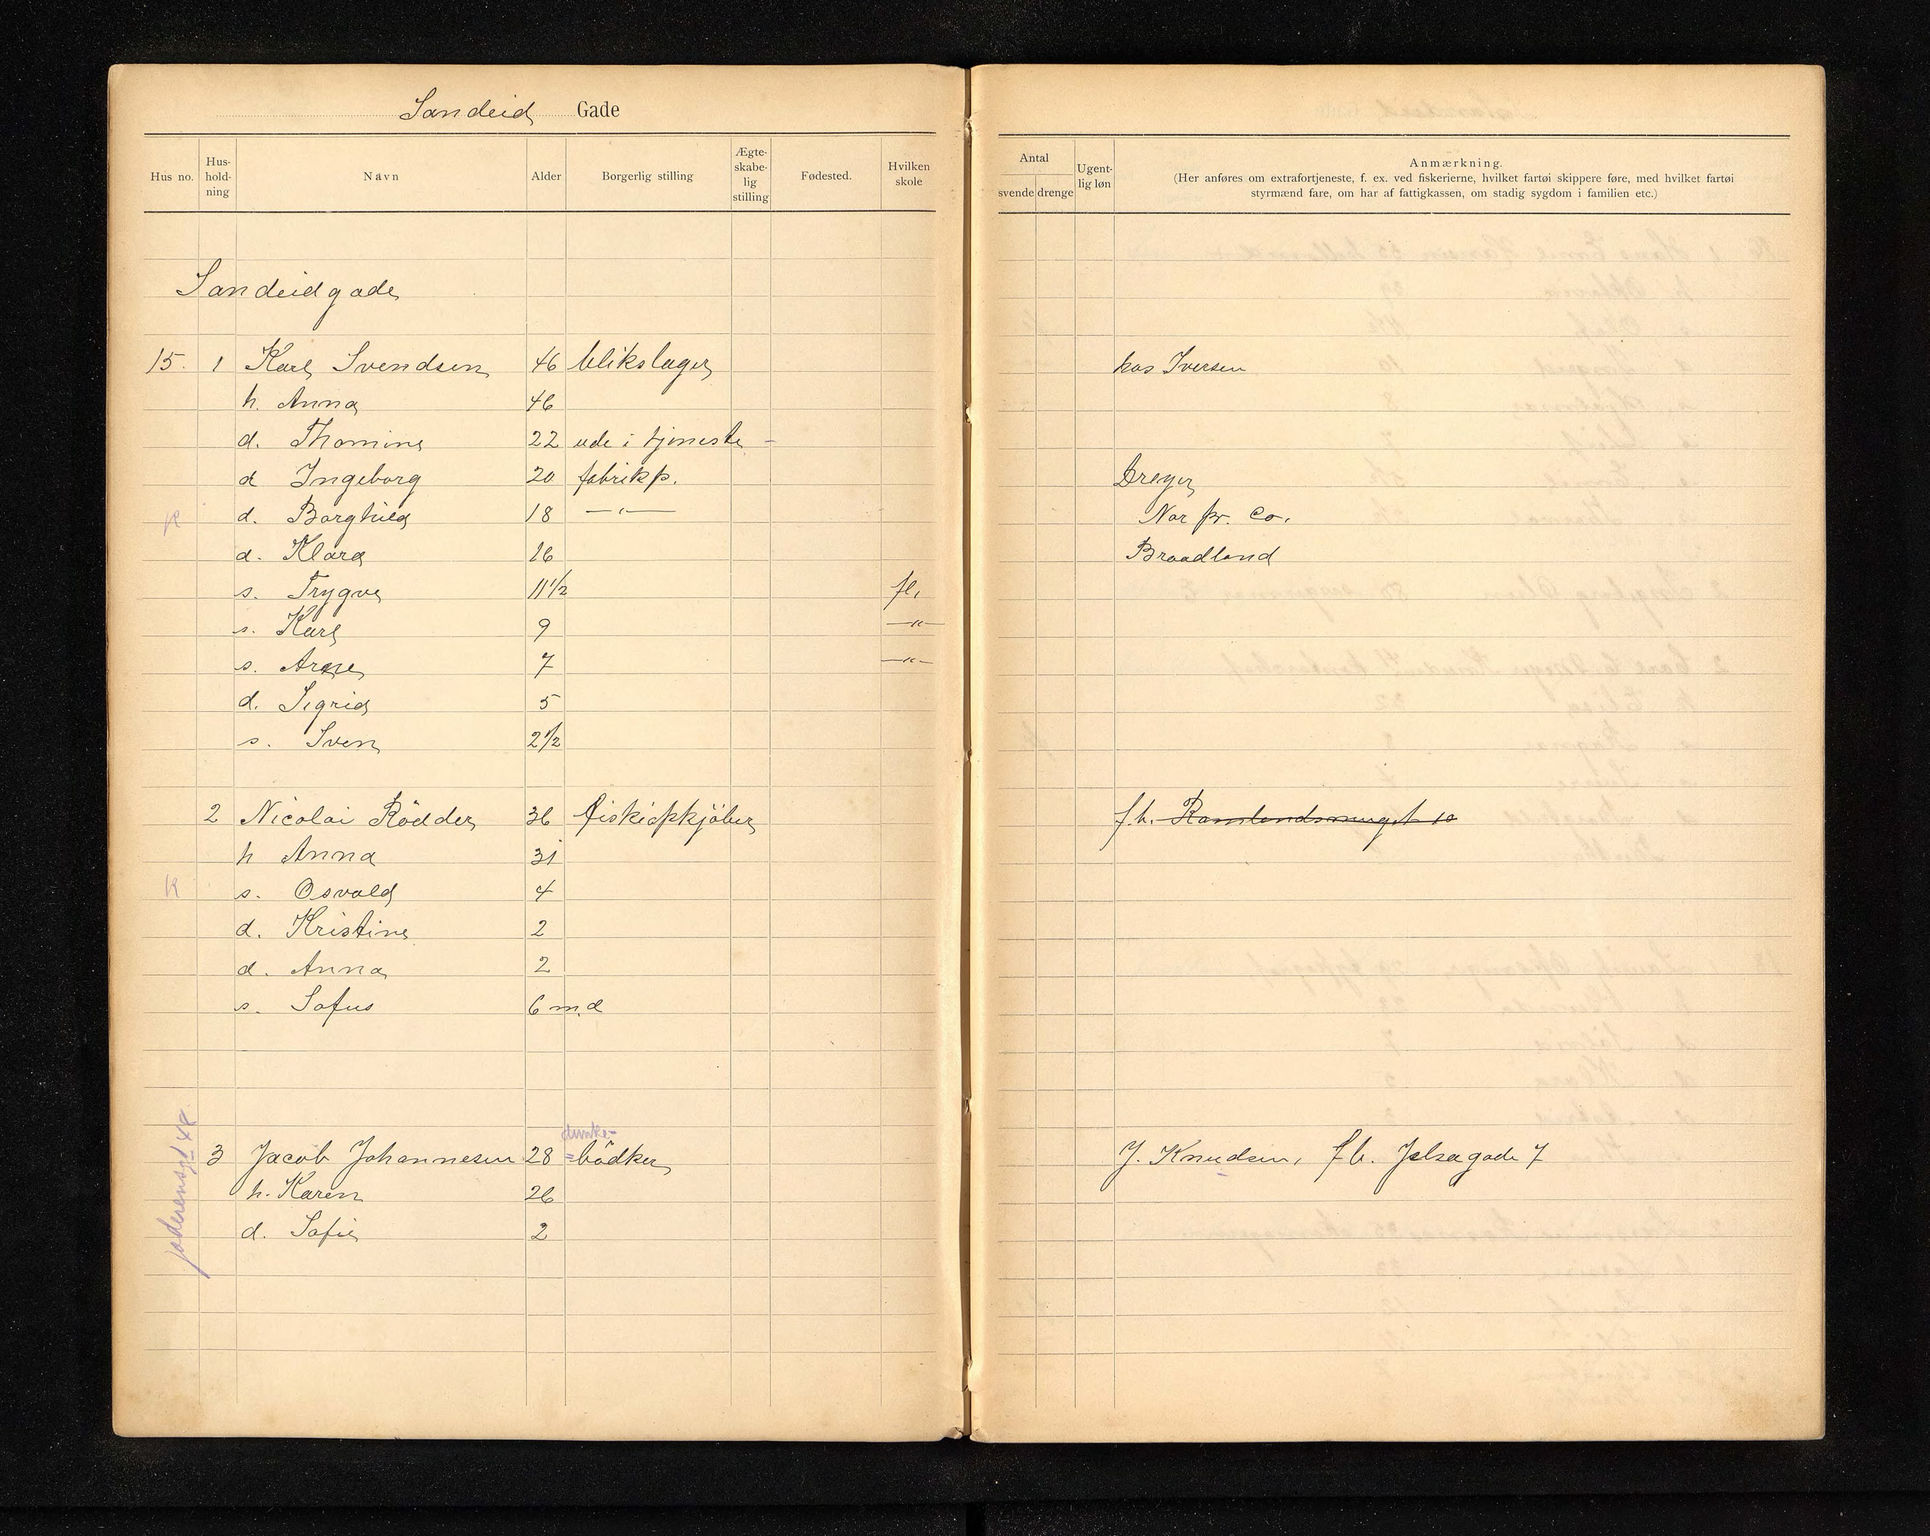 Sandeid Gade
Hus no. Hus-holdning Navn Alder Borgerlig stilling Ægte-skabe-lig stilling Fødested. Hvilken skole
Antal svende drenge Ugent-lig løn Anmærkning.
(Her anføres om extrafortjeneste, f. ex. ved fiskerierne, hvilket fartøi skippere føre, med hvilket fartøi
styrmænd fare, om har af fattigkassen, om stadig sygdom i familien etc.)
Sandeidgade
15. 1 Karl Svendsen 46 blikslager hos Iversen
h. Anna 46
d. Thomine 22 ude i tjeneste -
d Ingeborg 20 fabrikp. Dreyer
K d. Borghild 18 —"— Nor pr. Co.
d. Klara 16 Braadland
s. Trygve 11 1/2 fl.
s. Karl 9 —"—
s. Arne 7 —"—
d. Sigrid 5
s. Sven 2 1/2
2 Nicolai Rödder 36 fiskiopkjöber f.b. Ramslandsmuget 10
h Anna 31
K s. Osvald 4
d. Kristine 2
d. Anna 2
s. Sofus 6 m.d
3 Jacob Johannesen 28 dunke-=bödker J. Knudsen, f b. Jelsagade 7
h. Karen 26
d. Sofie 2